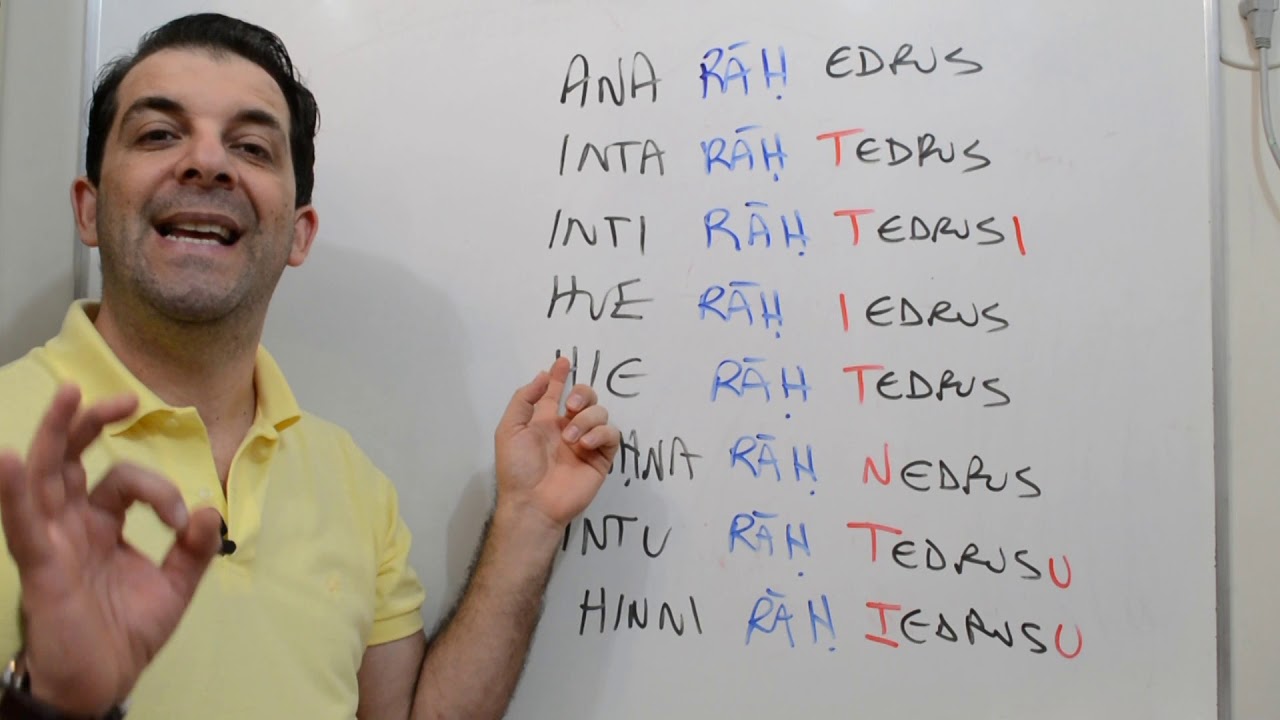 ANA RĀḤ EDRUS
INTA RĀḤ TEDRUS
INTI RĀḤ TEDRUSI
HUE RĀḤ IEDRUS
HIE RĀḤ TEDRUS
RĀḤ NEDRUS
INTU RĀḤ TEDRUSU
HINNI RĀḤ IEDRUSU